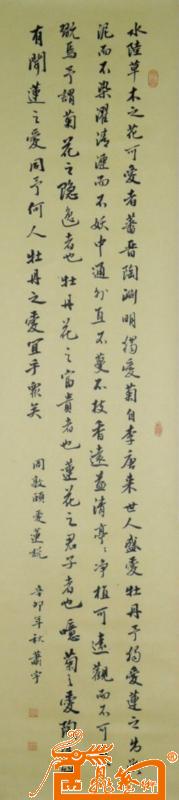 水陸草木之花可愛者蕃晉陶淵明獨愛菊自李唐来世人盛愛牡丹予獨愛蓮之
泥而不染濯清漣而不妖中通外直不蔓不枝香遠益清亭〻净植可遠觀而不可
翫焉予謂菊花之隐逸者也牡丹花之富貴者也蓮花之君子者也噫菊之愛陶
有聞蓮之愛同予何人牡丹之愛宜乎眾矣
周敦頤愛蓮說 辛卯年秋蕭宇